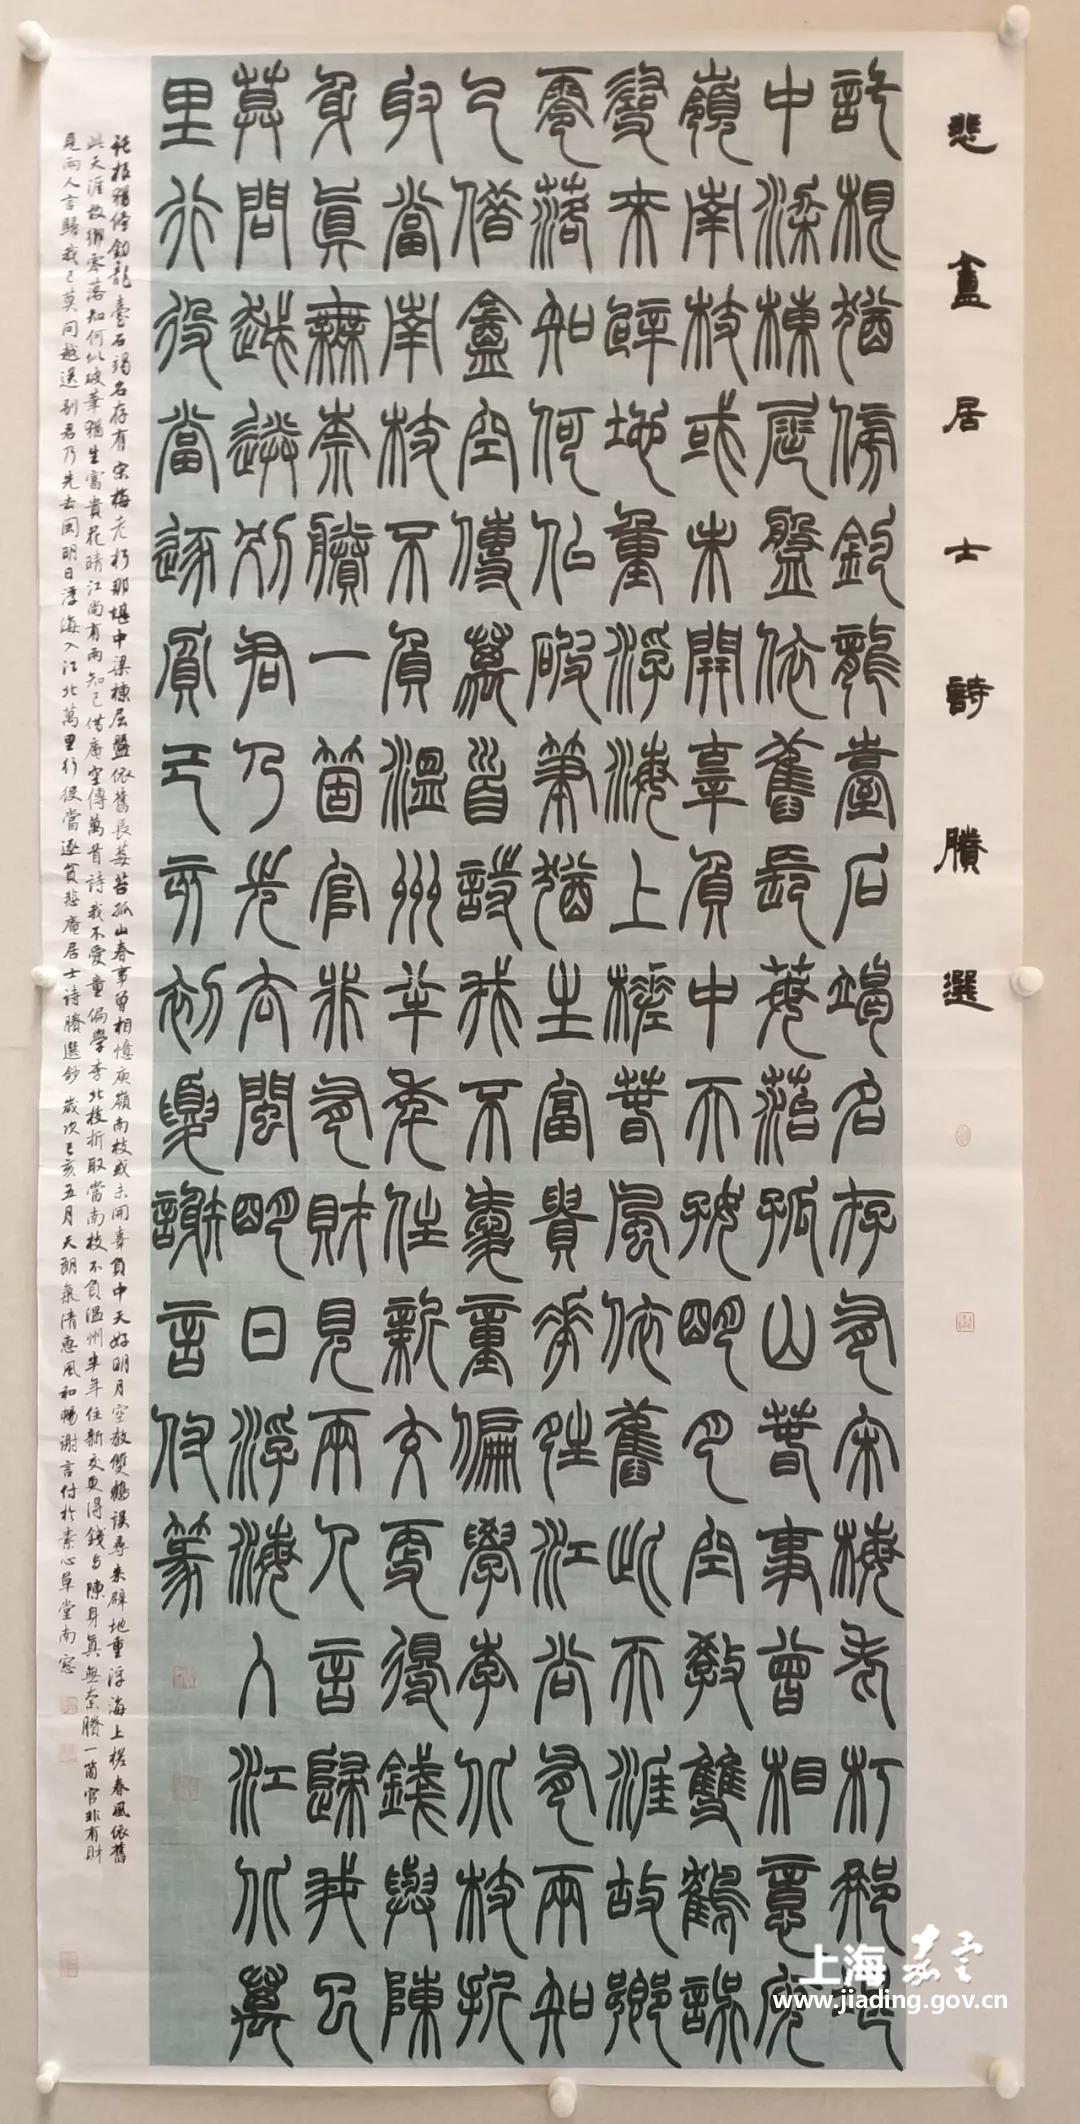 悲盦居士詩賸選
託根猶傍釣龍臺石竭名存有宋梅老朽那堪
中梁棟屈盤依舊長莓苔孤山春事曾相憶庾
嶺南枝或未開辜負中天好明月空教雙鶴誤
尋來辟地重浮海上槎春風依舊此天涯故鄉
零落知何似破筆猶生富貴花晴江尚有兩知
己借盦空傳萬首詩我不愛童偏學李北枝折
取當南枝不負溫州半年住新交更得錢與陳
身真無奈賸一箇官非有財見兩人言歸我已
莫問越遊別君乃先去閩明日浮海入江北萬
里行役當逐貧己亥初夏謝言付篆
託根猶傍釣龍臺石竭名存有宋梅老朽那堪中梁棟屈盤依舊長莓苔孤山春事曾相憶庾嶺南枝或未開辜負中天好明月空教雙鶴誤尋來辟地重浮海上槎春風依舊
此天涯故鄉零落知何似破筆猶生富貴花晴江尚有兩知己借庵空傳萬首詩我不愛童偏學李北枝折取當南枝不負溫州半年住新交更得錢與陳身真無奈賸一箇官非有財
見兩人言歸我已莫問越遊別君乃先去閩明日浮海入江北萬里行役當逐貧悲庵居士詩賸選鈔歲次己亥五月天朗氣清惠風和暢謝言付於素心草堂南窗
上海嘉定
www.jiading.gov.cn